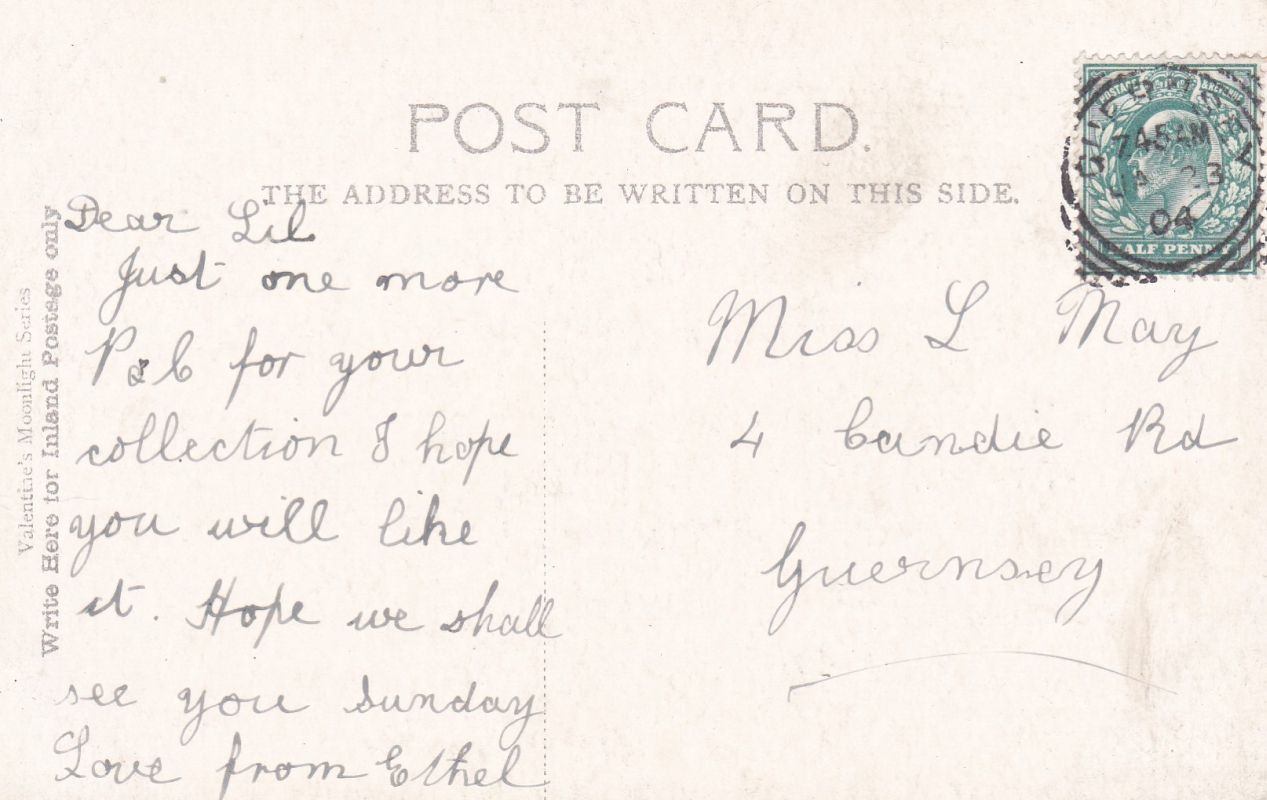 POST CARD.
THE ADDRESS TO BE WRITTEN ON THIS SIDE.
Valentine's Moonlight Series
Write Here for Inland Postage only
Dear Lil
Just one more
P & C for your
collection I hope
you will like
it. Hope we shall
see you Sunday
Love from Ethel
Miss L May
4 Candie Rd
Guernsey
POSTAGE & REVENUE
HALF PENNY
GUERNSEY
7 45 AM
23
04